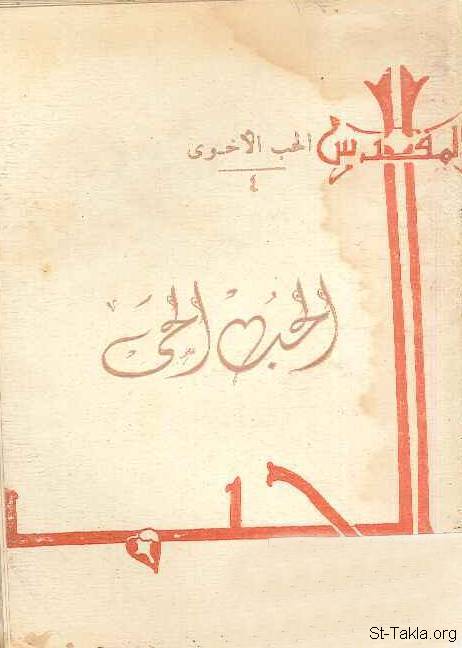 المقدس
الحب الأخوى
٤
الحب الحى
الحب
St-Takla.org